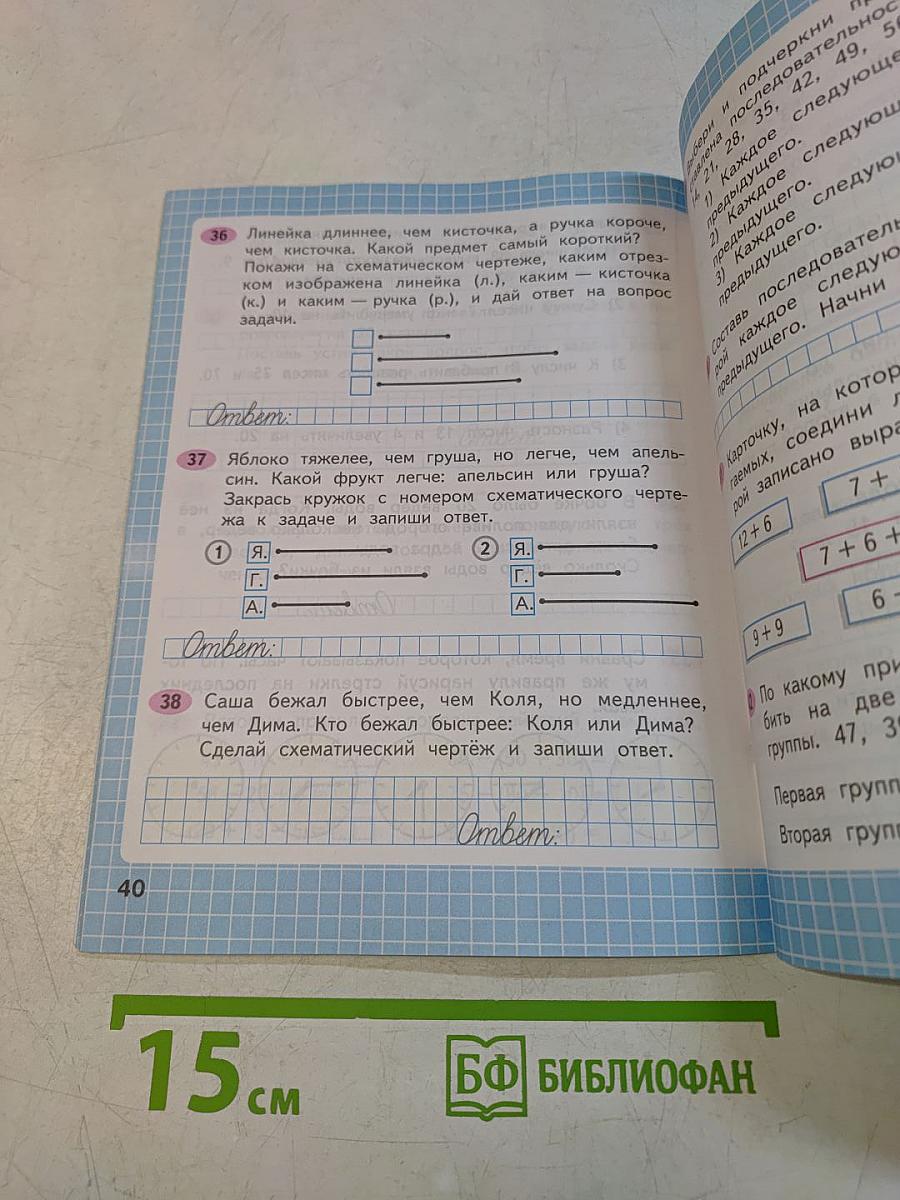 36 Линейка длиннее, чем кисточка, а ручка короче,
чем кисточка. Какой предмет самый короткий?
Покажи на схематическом чертеже, каким отрез-
ком изображена линейка (л.), каким — кисточка
(к.) и каким — ручка (р.), и дай ответ на вопрос
задачи.
Ответ:
37 Яблоко тяжелее, чем груша, но легче, чем апель-
син. Какой фрукт легче: апельсин или груша?
Закрась кружок с номером схематического черте-
жа к задаче и запиши ответ.
1 Я. 2 Я.
Г. Г.
А. А.
Ответ:
38 Саша бежал быстрее, чем Коля, но медленнее,
чем Дима. Кто бежал быстрее: Коля или Дима?
Сделай схематический чертёж и запиши ответ.
Ответ:
40
и подчеркни
последовательнос
21, 28, 35, 42, 49, 56
1) Каждое следующе
предыдущего.
2) Каждое следующ
предыдущего.
3) Каждое следую
предыдущего.
Составь последователь
рой каждое следую
предыдущего. Начни
Карточку, на котор
гаемых, соедини л
рой записано выра
12 + 6
7 +
7 + 6 +
9 + 9
6
По какому при
бить на две
группы. 47, 39
Первая групп
Вторая групп
15 см
БФ БИБЛИОФАН